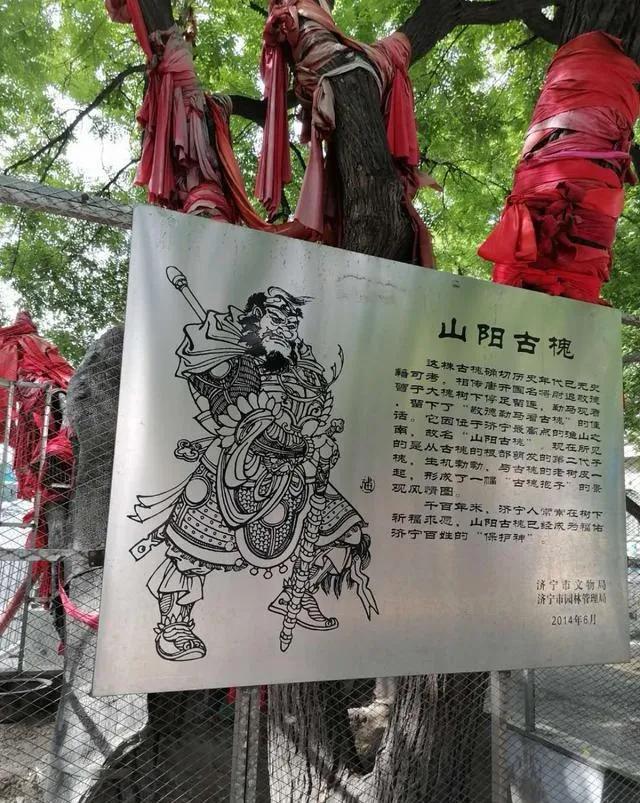 山阳古槐
这株古槐确切历史年代已无史
籍可考，相传唐开国名将尉迟敬德
曾于大槐树下停足留连，勒马观看
，留下了“敬德勒马看古槐”的佳
话。它因位于济宁最高点的渔山之
南，故名“山阳古槐”。现在所见
的是从古槐的根部萌发的第二代子
槐，生机勃勃，与古槐的老树皮一
起，形成了一幅“古槐抱子”的景
观风情图。
千百年来，济宁人常常在树下
祈福求愿，山阳古槐已经成为福佑
济宁百姓的“保护神”。
济宁市文物局
济宁市园林管理局
2014年6月